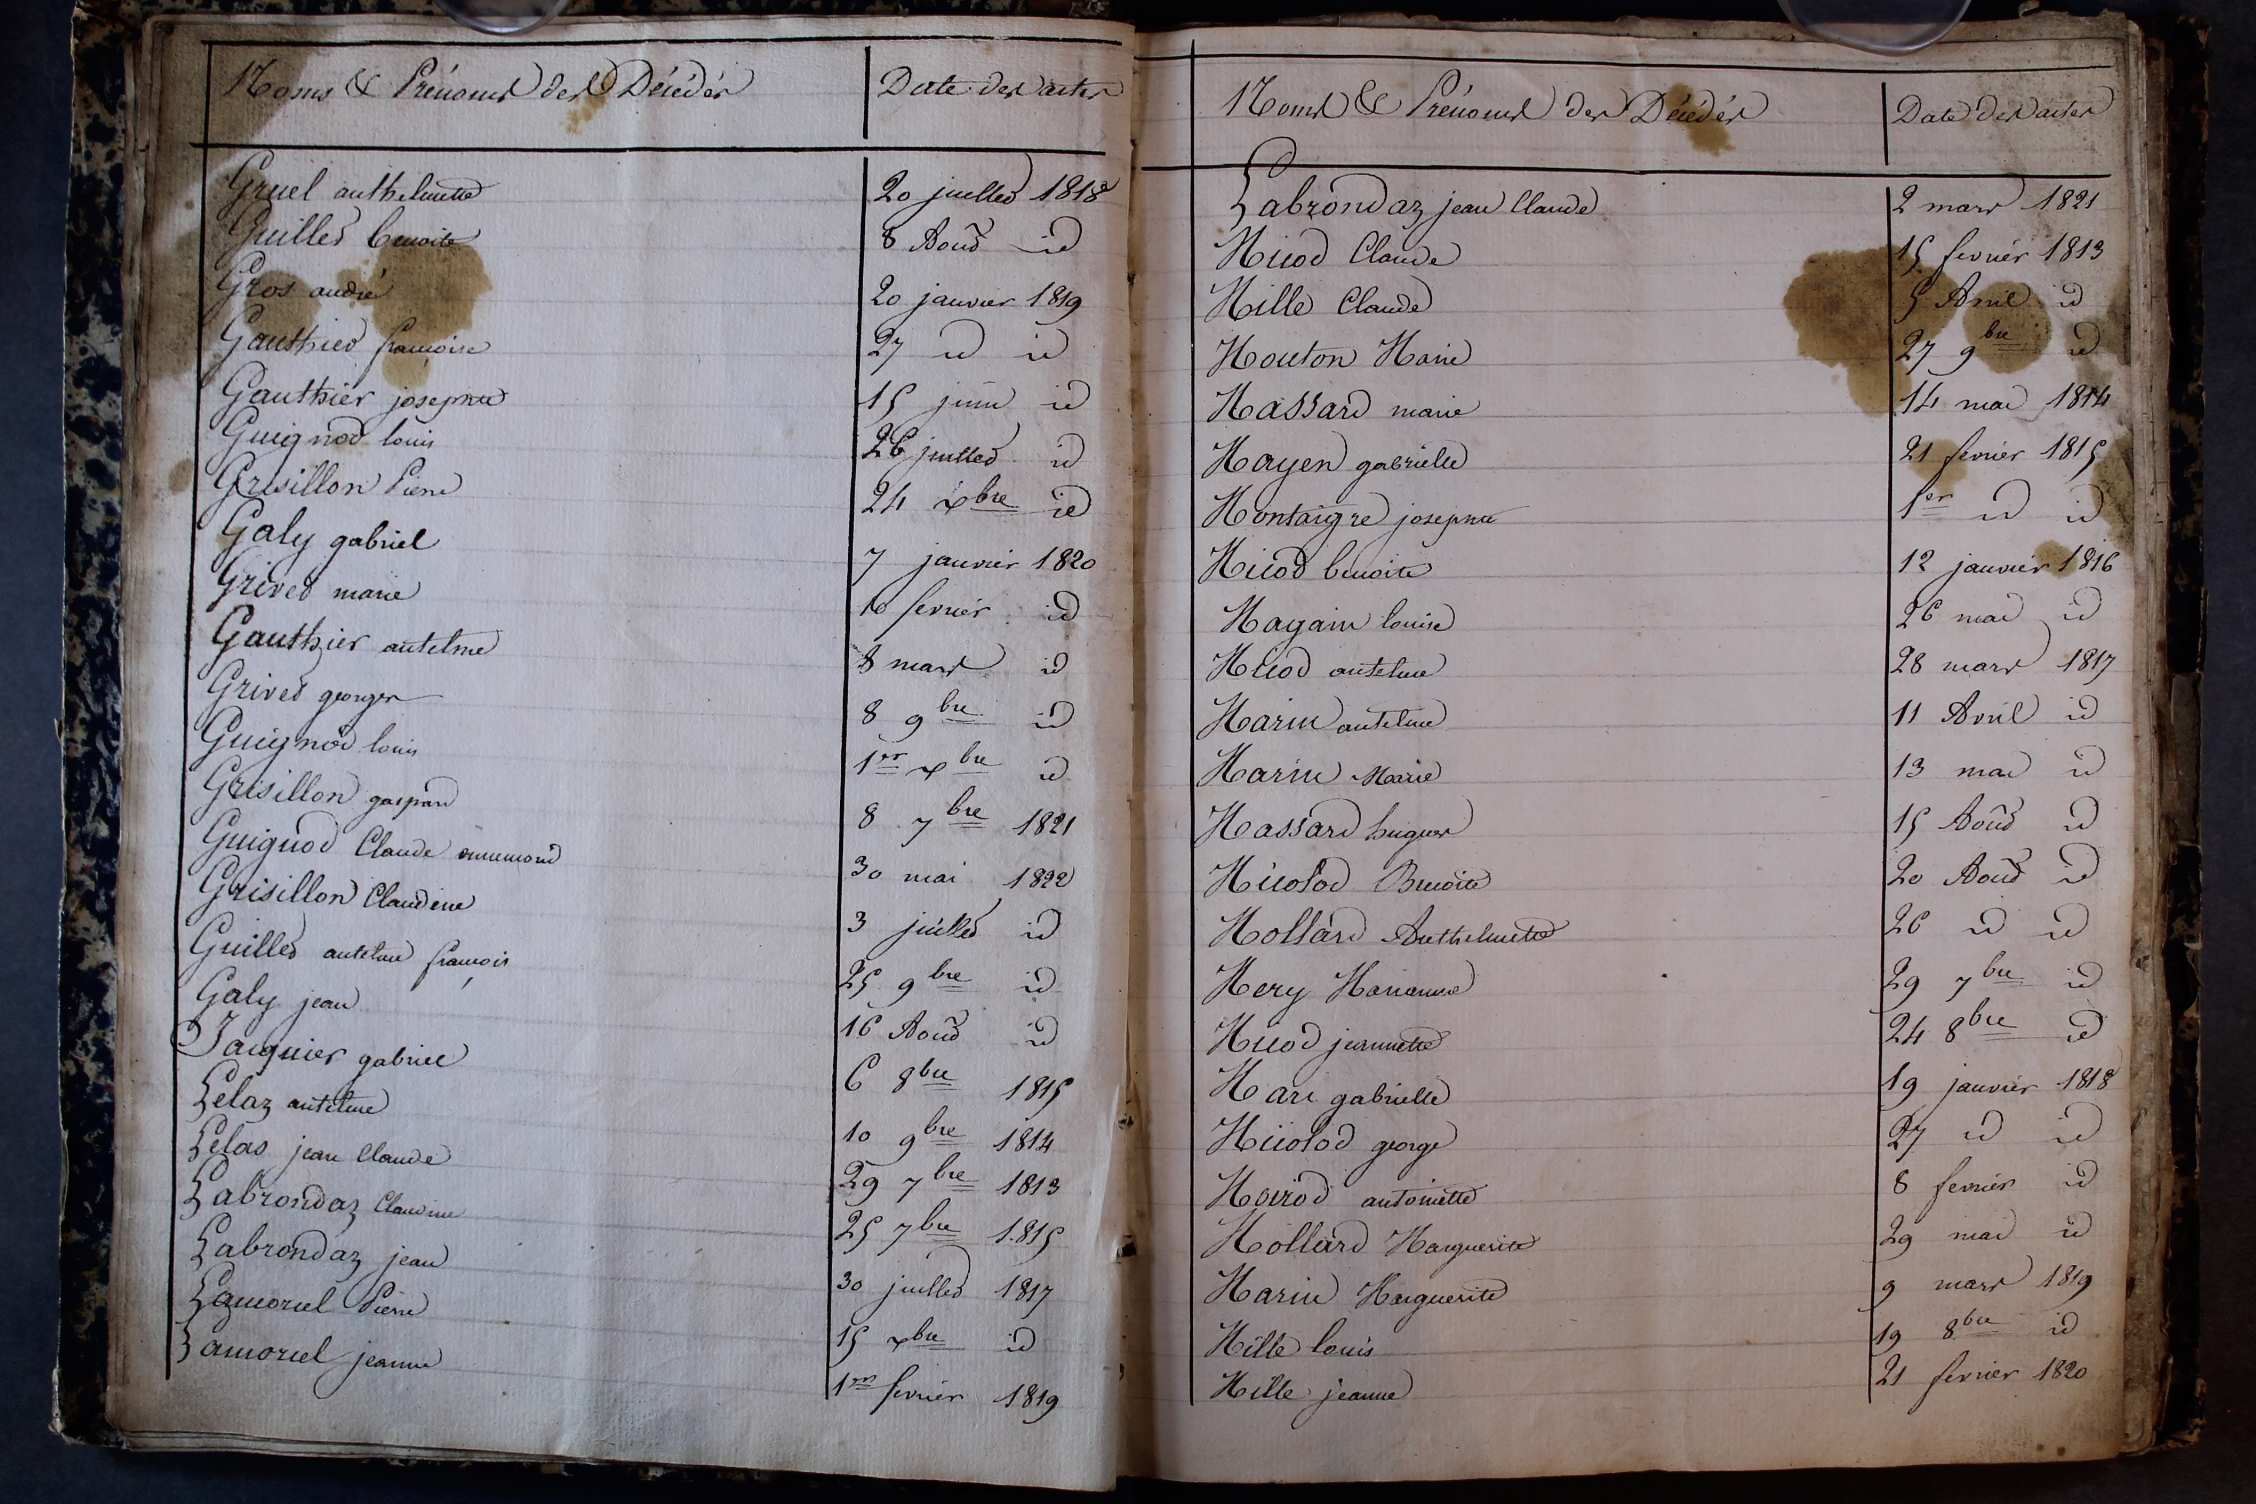 Noms & Prénoms des Décédés Date des actes
Gruel anthelmette 20 juillet 1818
Guillet benoite 8 Août id
Gros andré 20 janvier 1819
Gauthier françoise 27 id id
Gauthier josephte 15 juin id
Guignod louis 26 juillet id
Grisillon Pierre 24 xbre id
Galy gabriel 7 janvier 1820
Grivet marie 10 fevrier id
Gauthier antelme 8 mars id
Grivet georges 8 9bre id
Guignod louis 1er xbre id
Grisillon gaspard 8 7bre 1821
Guignod Claude ennemond 30 mai 1822
Grisillon Claudine 3 juillet id
Guillet antelme françois 25 9bre id
Galy jean 16 Août id
Jacquier gabriel 6 8bre 1815
Lelaz antelme 10 9bre 1814
Lelas jean Claude 29 7bre 1813
Labrondaz Claudine 25 7bre 1815
Labrondaz jean 30 juillet 1817
Lamoriel Pierre 15 xbre id
Lamoriel jeanne 1er fevrier 1819
Noms & Prénoms des Décédés Date des actes
Labrondaz jean Claude 2 mars 1821
Micod Claude 15 fevrier 1813
Mille Claude 5 Avril id
Mouton Marie 27 9bre id
Massard marie 14 mai 1814
Mayen gabrielle 21 fevrier 1815
Montaigre josephte 1er id id
Micod benoite 12 janvier 1816
Magain louise 26 mai id
Micod antelme 28 mars 1817
Marin antelme 11 Avril id
Marin Marie 13 mai id
Massard hugues 15 Août id
Micolod Benoite 20 Août id
Mollard Anthelmette 26 id id
Mery Marianne 29 7bre id
Micod jeannette 24 8bre id
Mari gabrielle 19 janvier 1818
Micolod george 27 id id
Moirod antoinette 8 fevrier id
Mollard Marguerite 29 mai id
Marin Marguerite 9 mars 1819
Mille louis 19 8bre id
Mille jeanne 21 fevrier 1820